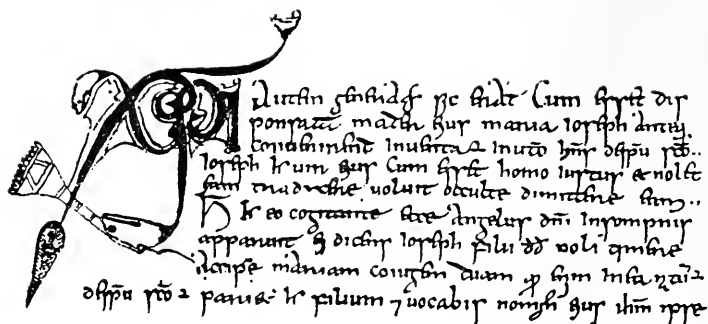 Autem generatio sic erat Cum esset dis
ponsata mater eius maria Ioseph anteq
Convenirent inventa est in utero hens de spu sco..
Ioseph vir eius Cum esset homo iustus et nollet
eam traducere voluit occulte dimittere eam..
H eo cogitante ecce Angelus dni Insompnis
apparuit ei dicens Ioseph fili dd noli timere
Accipere mariam coiugem tuam qd enim
de spu sco est pariet filium et vocabis nomen eius ihm ipse